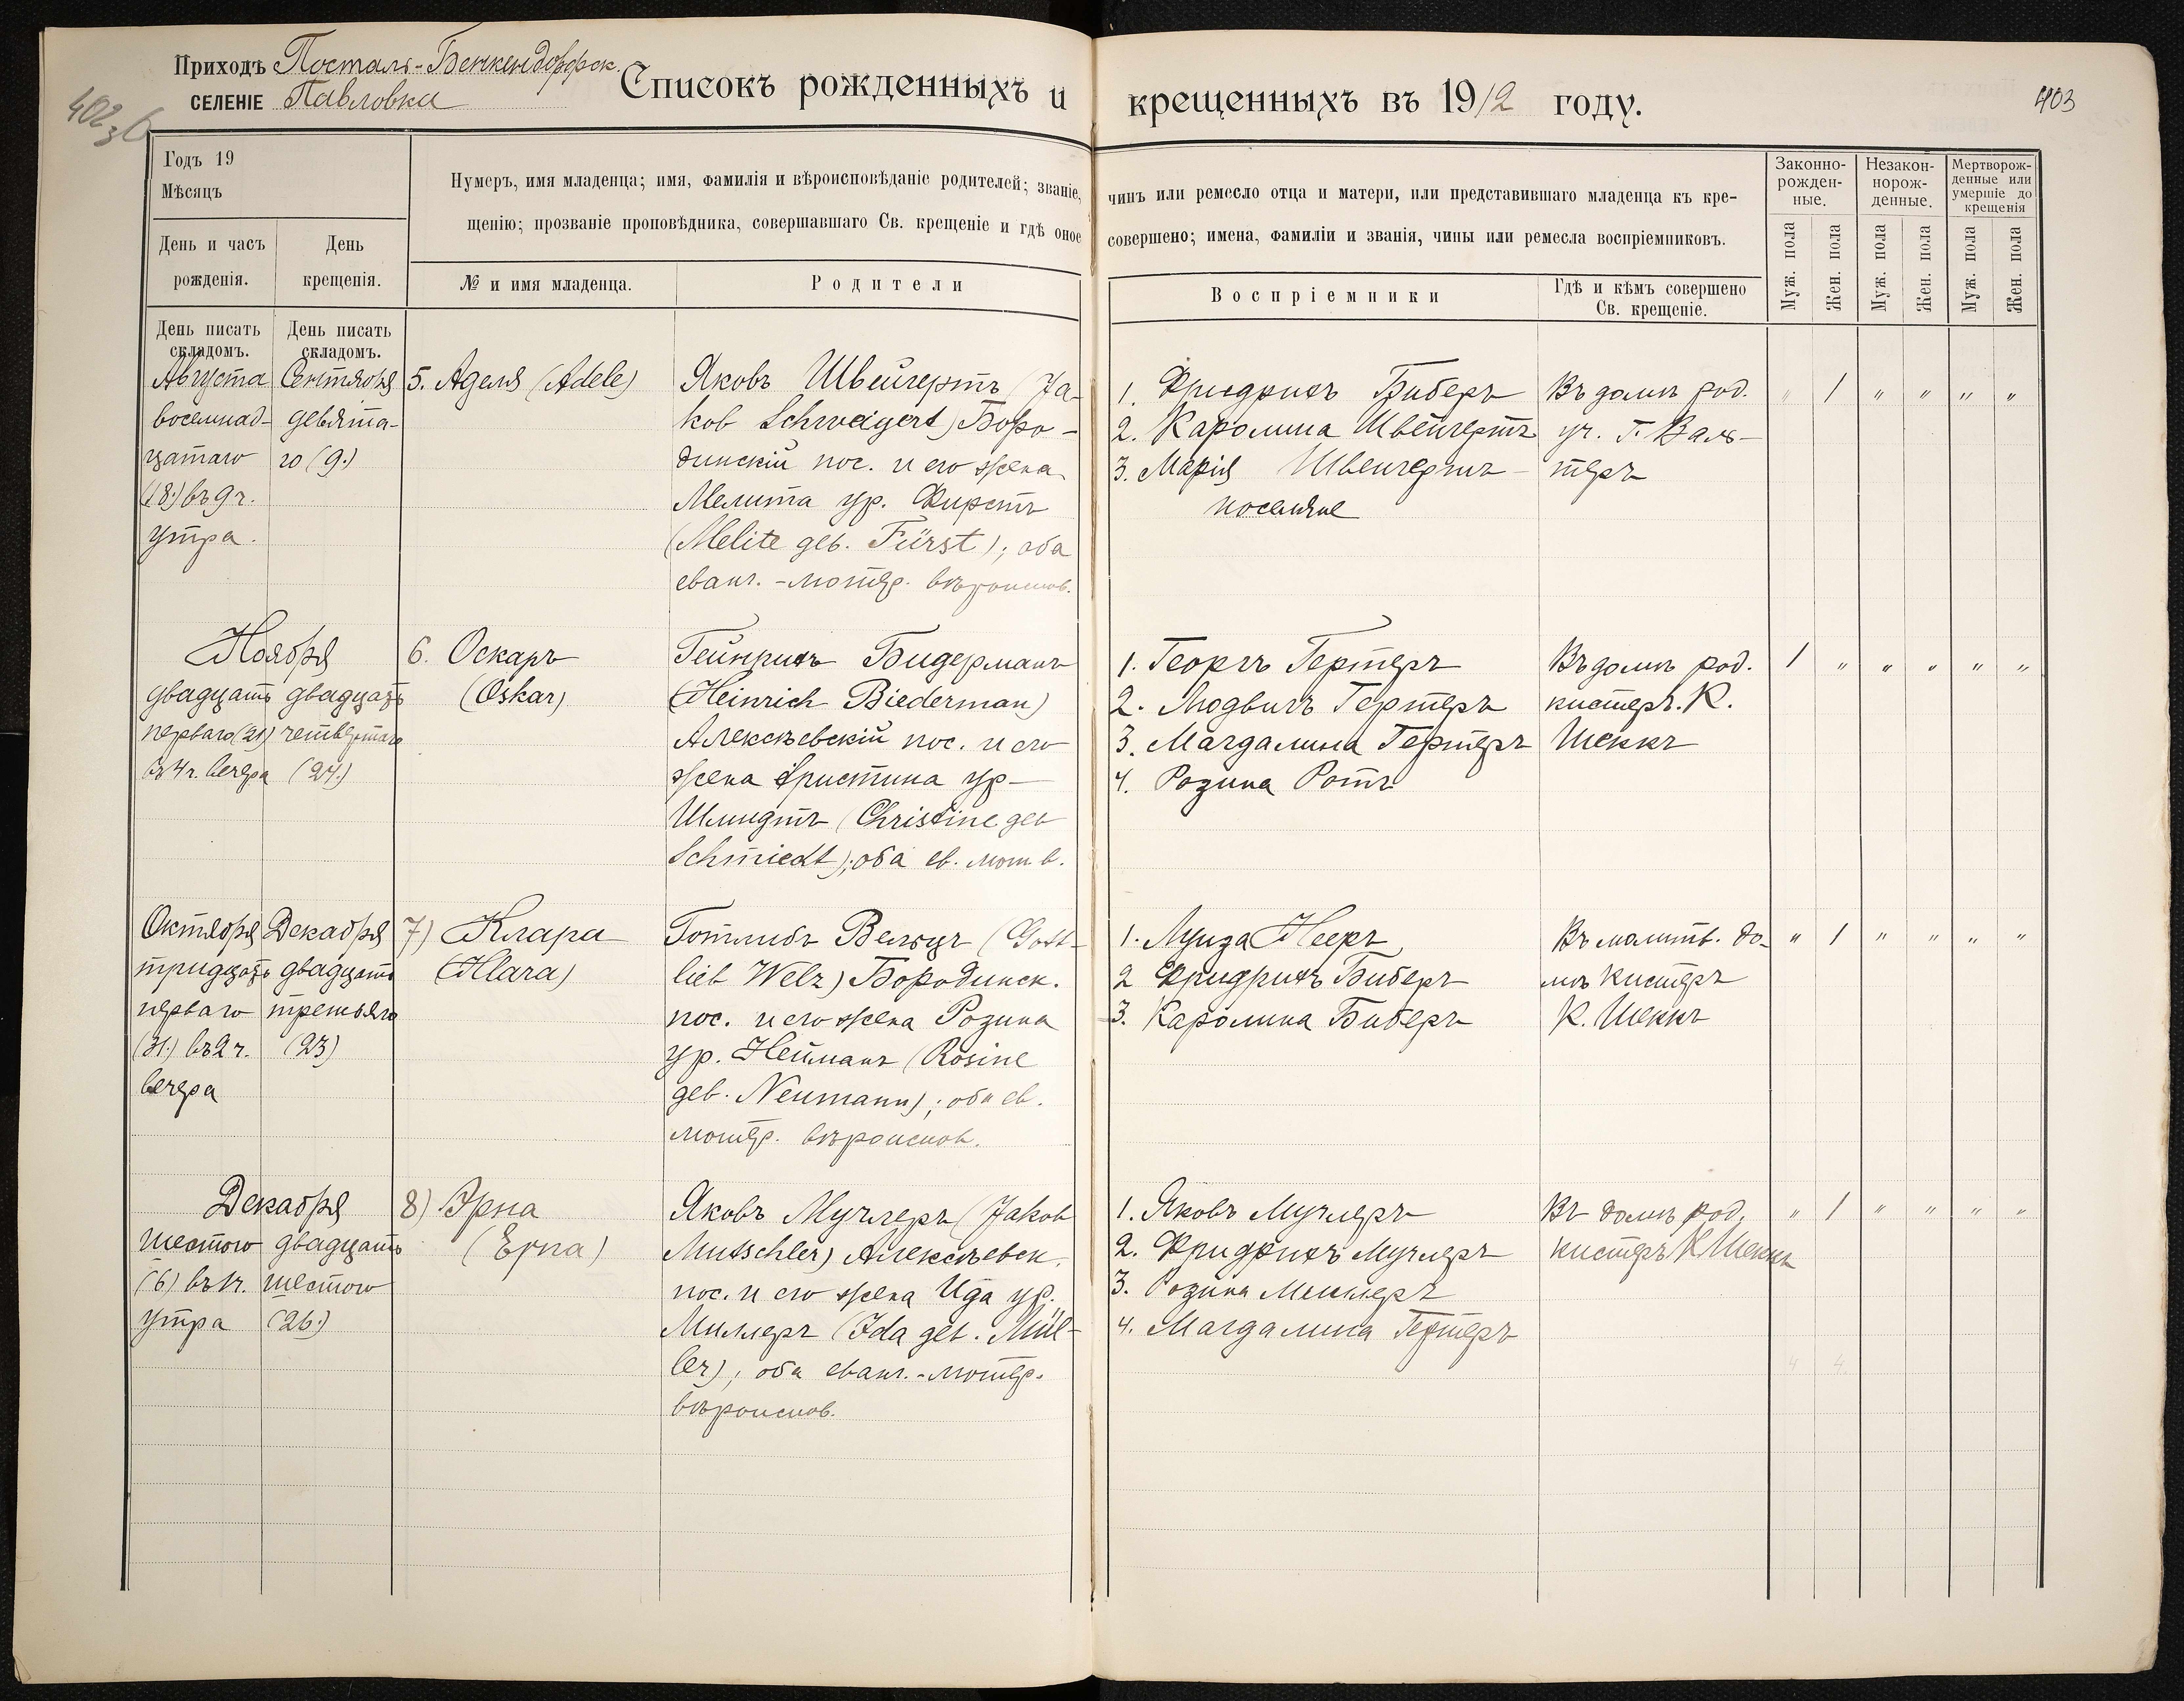 Приходъ Посталь-Бенкендорфск.
СЕЛЕНІЕ Павловка
Списокъ рожденныхъ и крещенныхъ въ 1912 году.
403
Годъ 19
Мѣсяцъ
День и часъ рожденія.
День крещенія.
Нумеръ, имя младенца; имя, фамилія и вѣроисповѣданіе родителей; званіе, чинъ или ремесло отца и матери, или представившаго младенца къ кре-
щенію; прозваніе проповѣдника, совершавшаго Св. крещеніе и гдѣ оное совершено; имена, фамиліи и званія, чины или ремесла воспріемниковъ.
№ и имя младенца.
Родители
Воспріемники
Гдѣ и кѣмъ совершено
Св. крещеніе.
Законно-
рожден-
ные.
Незакон-
норож-
денные.
Мертворож-
денные или
умершіе до
крещенія
Муж. пола
Жен. пола
Муж. пола
Жен. пола
Муж. пола
Жен. пола
День писать
складомъ.
День писать
складомъ.
Августа
восемнад-
цатаго
(18.) въ 9 ч.
утра.
Сентября
девята-
го (9.)
5. Аделя (Adele)
Яковъ Швейгертъ (Ja-
kob Schweigert) Боро-
динскій пос. и его жена
Мелита ур. Фирстъ
(Melite geb. Fürst); оба
еванг.-лютер. вѣроиспов.
1. Фридрихъ Биберъ
2. Каролина Швейгертъ
3. Марія Швейгертъ -
поселяне
Въ домѣ род.
уч. Г. Валь-
теръ
" 1 " " " "
Ноября
двадцать
перваго (21)
въ 4 ч. вечера
двадцать
четвертаго
(24.)
6. Оскаръ
(Oskar)
Гейнрихъ Бидерманъ
(Heinrich Biederman)
Алексѣевскій пос. и его
жена Христина ур-
Шмидтъ (Christine geb
Schmiedt); оба ев. лют. в.
1. Георгъ Гертеръ
2. Людвигъ Гертеръ
3. Магдалина Гертеръ
4. Розина Ротъ
Въ домѣ род.
кистеръ. К.
Шеккъ
1 " " " " "
Октября
тридцать
перваго
(31.) въ 2 ч.
вечера
Декабря
двадцать
третьяго
(23)
7) Клара
(Klara)
Готлибъ Вельцъ (Gott-
lieb Welz) Бородинск.
пос. и его жена Розина
ур. Нейманъ (Rosine
geb. Neumann); оба ев.
лютер. вѣроиспов.
1. Луиза Нееръ
2 Фридрихъ Биберъ
3. Каролина Биберъ
Въ молитв. до-
мѣ кистеръ
К. Шеккъ
" 1 " " " "
Декабря
шестого
(6) въ 1 ч.
утра
двадцать
шестого
(26.)
8) Эрна
(Erna)
Яковъ Мучлеръ (Jakob
Mutschler) Алексѣевск.
пос. и его жена Ида ур.
Миллеръ (Ida geb. Mül-
ler); оба еванг.-лютер.
вѣроиспов.
1. Яковъ Мучлеръ
2. Фридрихъ Мучлеръ
3. Розина Миллеръ
4. Магдалина Гертеръ
Въ домѣ род.
кистеръ К Шеккъ
" 1 " " " "
4 4